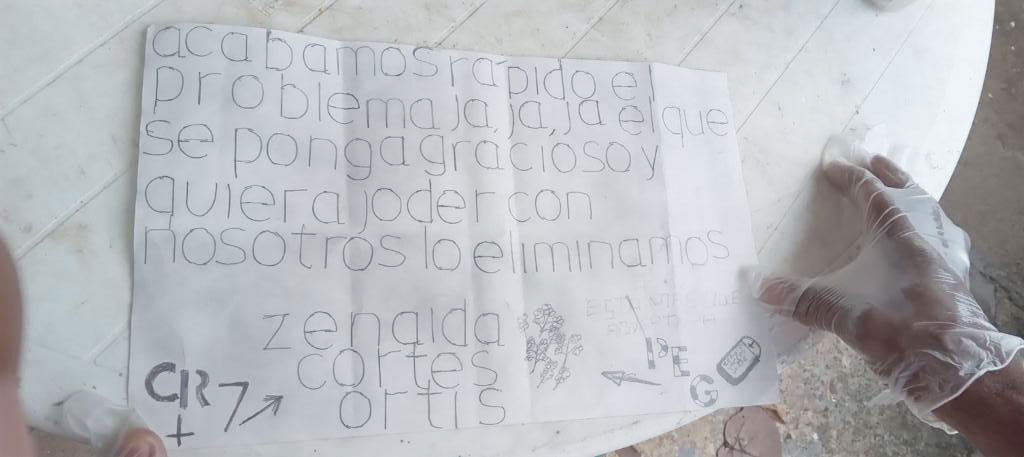 acabamos rapido el
problema ja, ja, ja el que
se ponga gracioso y
quiera joder con
nosotros lo eliminamos
zenaida
cortes
ortis
CR7
+
PEG